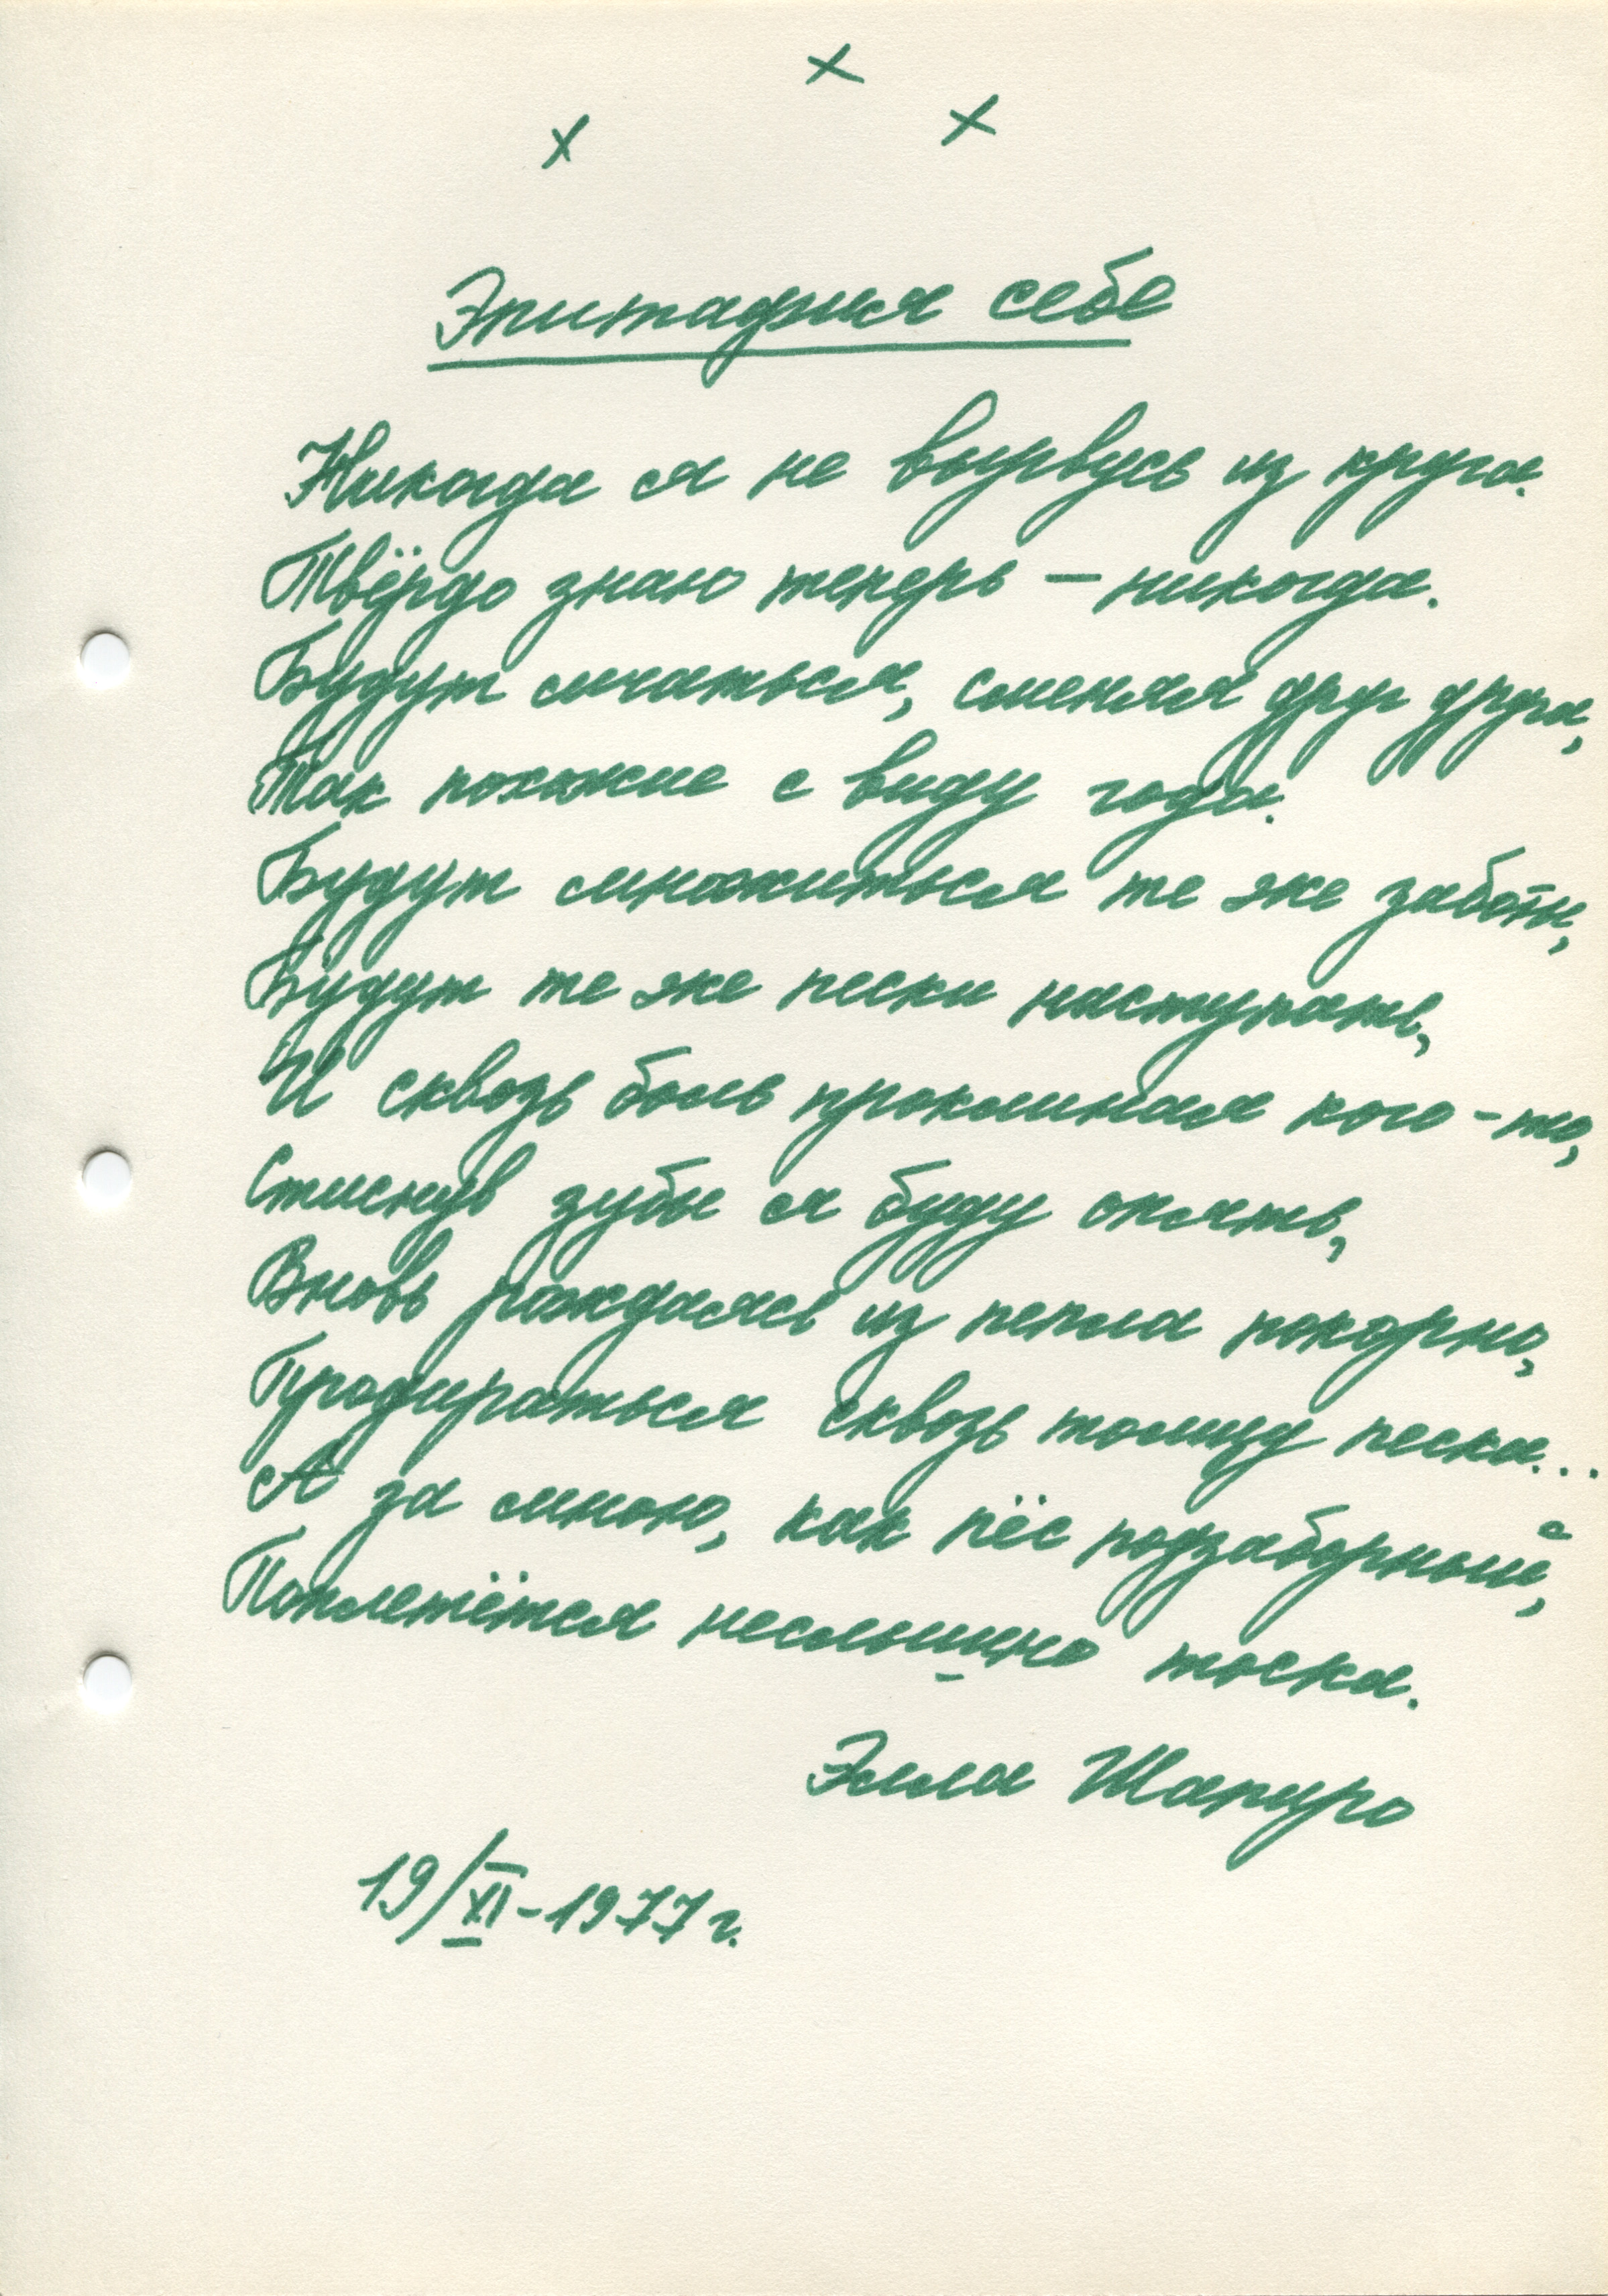 х х х
Эпитафия себе
Никогда я не вырвусь из круга.
Твёрдо знаю теперь — никогда.
Будут мчаться, сменяя друг друга,
Так похожие с виду года.
Будут множиться те же заботы,
Будут те же пески наступать,
И сквозь боль проклиная кого-то,
Стиснув зубы я буду опять,
Вновь рождаясь из пепла покорно,
Продираться сквозь толщу песка...
А за мною, как пёс подзаборный,
Поплетётся неслышно тоска.
Элла Шапиро
19/XI-1977 г.